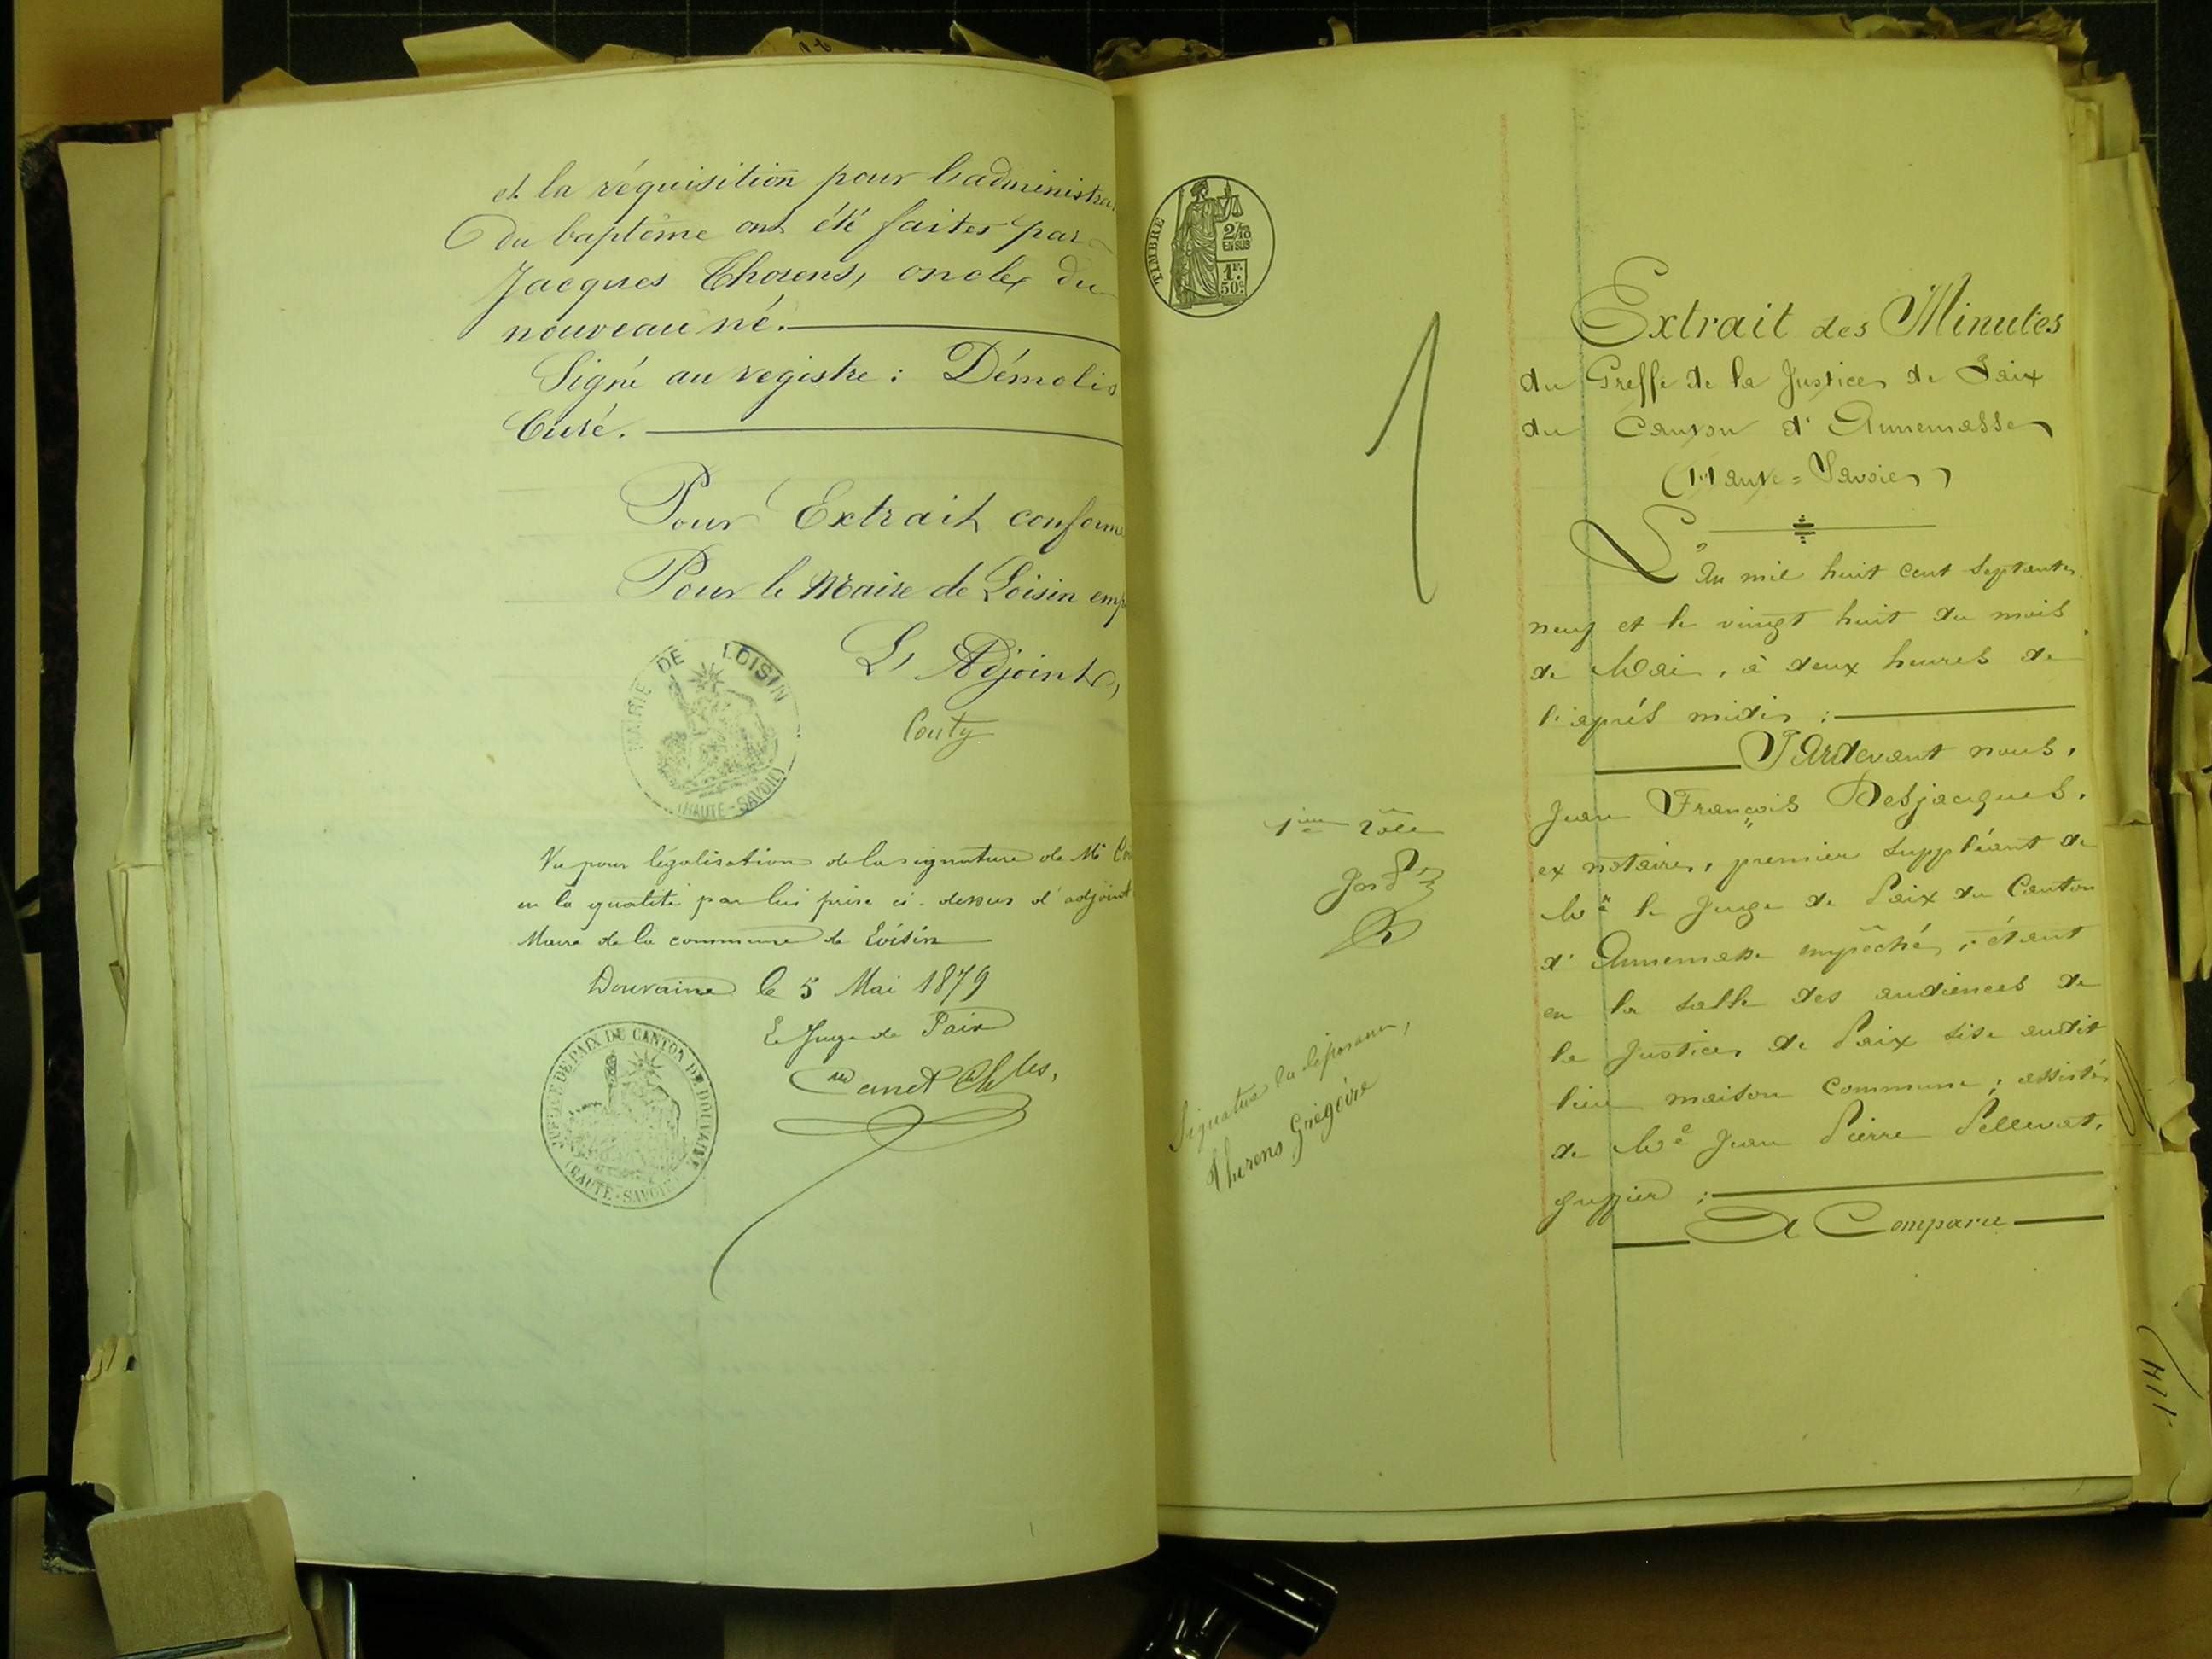 et la réquisition pour l'administra
du baptême ont été faites par
Jacques Thorens, oncle du
nouveau né.
Signé au registre : Démolis
Curé.
Pour Extrait conforme
Pour le Maire de Loisin emp
L'Adjoint,
Couty
MAIRIE DE LOISIN
(HAUTE-SAVOIE)
Vu pour légalisation de la signature de Mr Co
en la qualité par lui prise ci-dessus d'adjoint
Maire de la commune de Loisin
Douvaine le 5 Mai 1879
Le Juge de Paix
JUSTICE DE PAIX DU CANTON DE DOUVAINE
(HAUTE-SAVOIE)
TIMBRE
2/10
EN SUS
1F.
50c.
1
1ier rôle
Signature du déposant,
Thorens Grégoire
Extrait des Minutes
du Greffe de la Justice de Paix
du Canton d'Annemasse
(Haute=Savoie)
L'An mil huit cent septante
neuf et le vingt huit du mois
de Mai, à deux heures de
l'après midi :
Pardevant nous,
Jean François Desjacques,
ex notaire, premier suppléant de
Mr le Juge de Paix du Canton
d'Annemasse empêché, étant
en la salle des audiences de
la Justice de Paix sise audit
lieu maison commune ; assisté
de Me Jean Pierre Pellevat,
greffier :
A Comparu
171